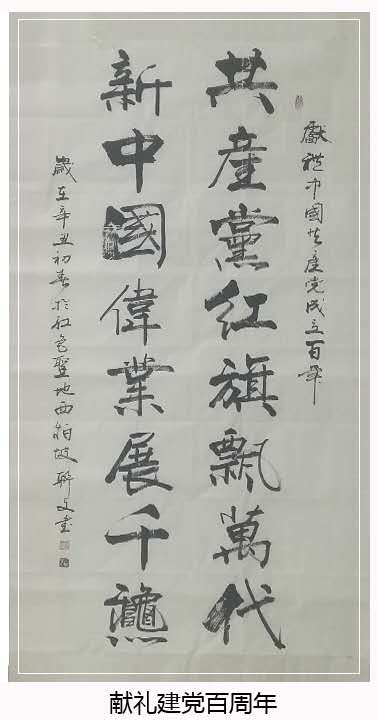 獻禮中國共產党成立百年
共產黨红旗飄萬代
新中國偉業展千龝
歲在辛丑初春於红色聖地西柏坡
献礼建党百周年